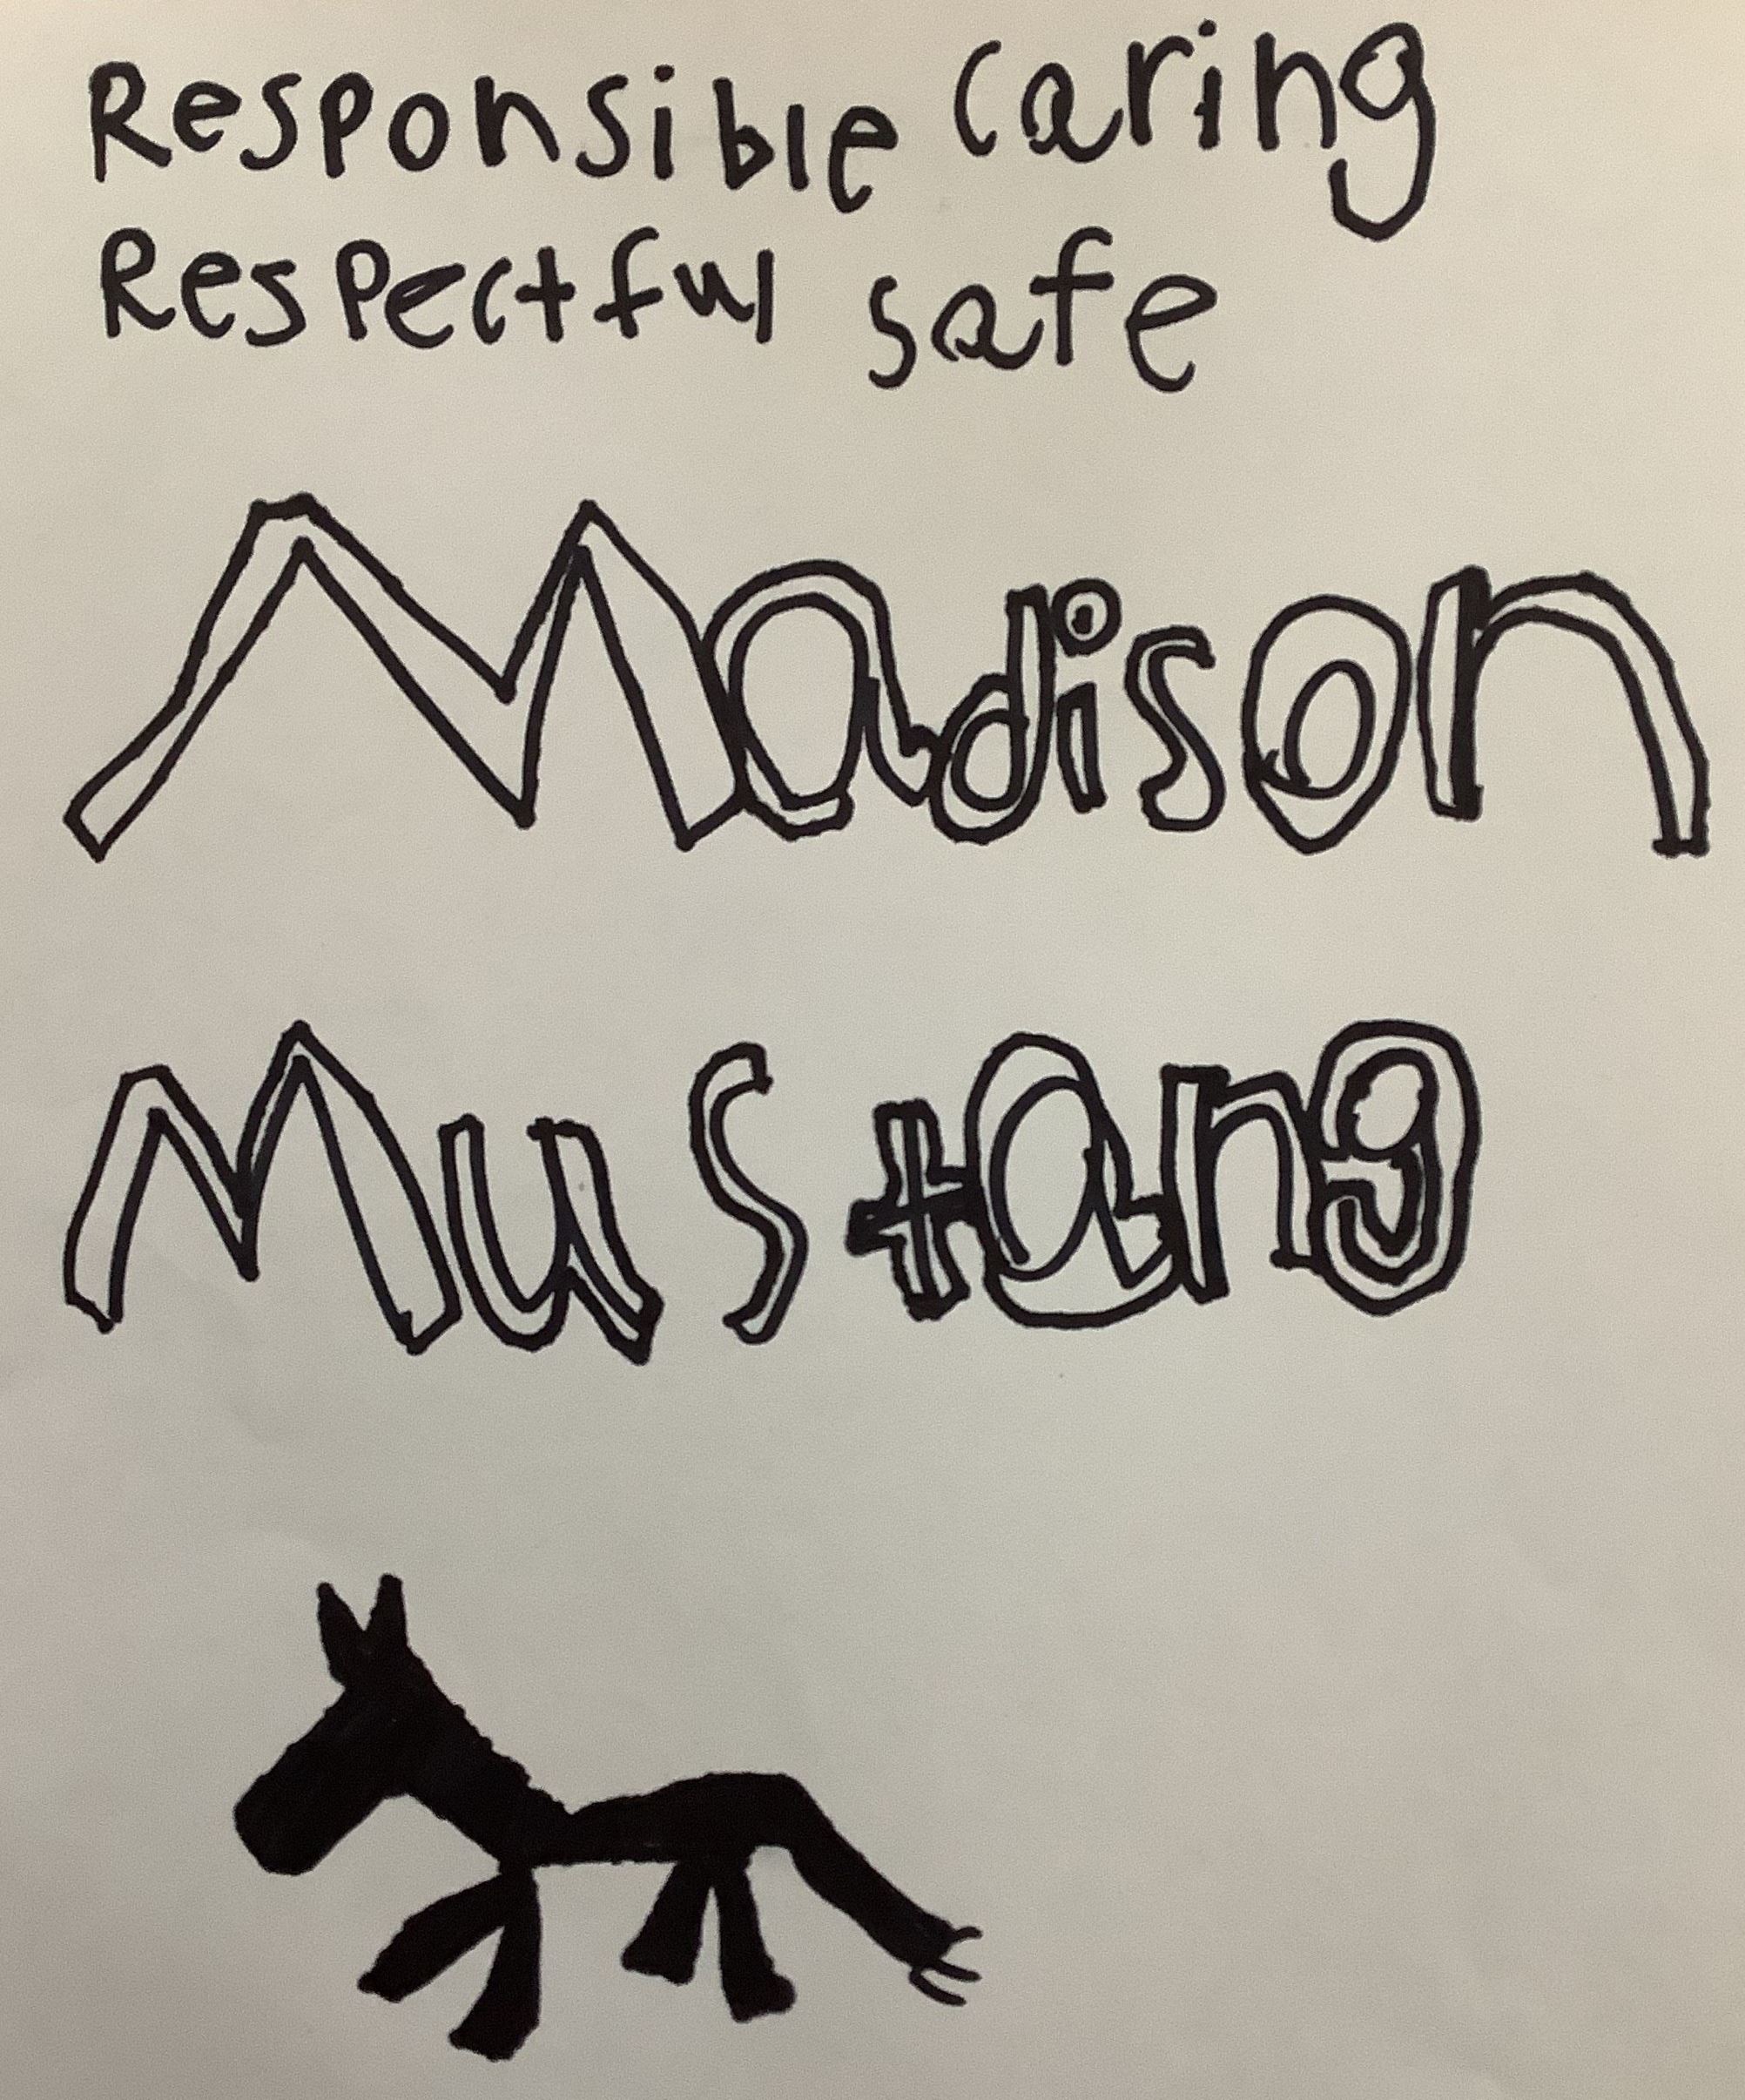 Responsible caring
Respectful safe
Madison
Mustang